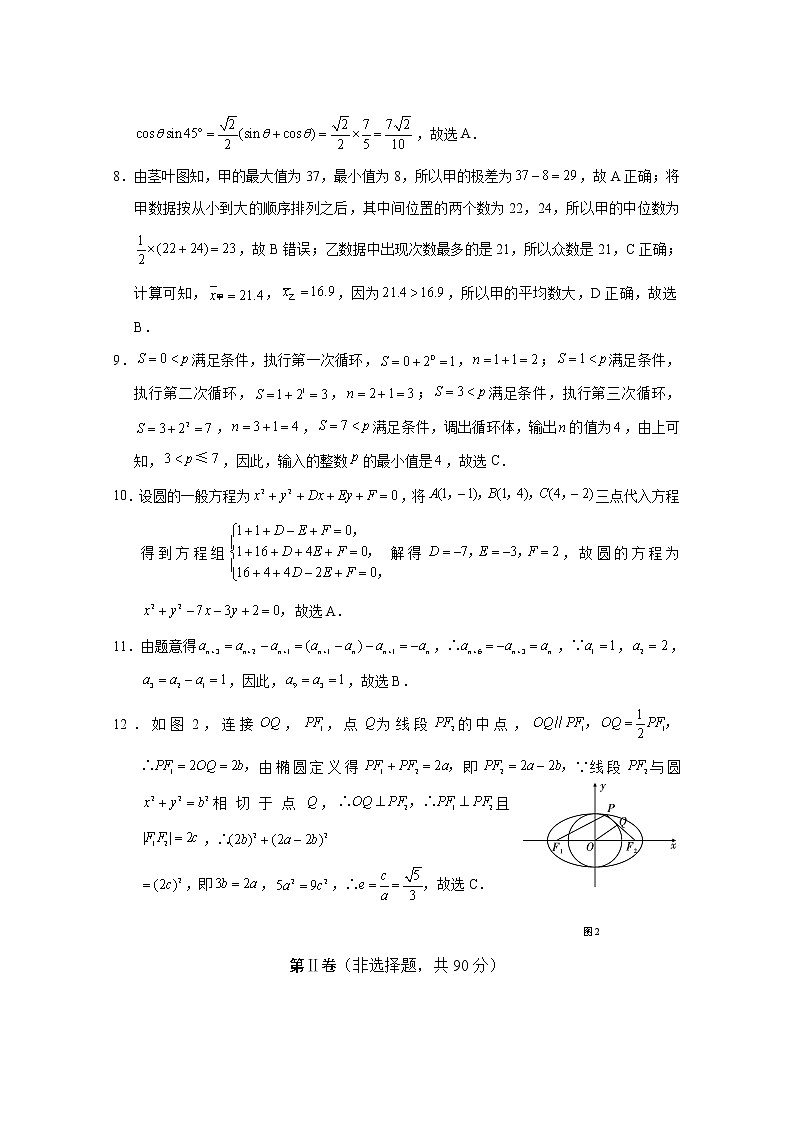 cosθsin45° = √2/2(sinθ + cosθ) = √2/2 × 7/5 = 7√2/10，故选 A．
8．由茎叶图知，甲的最大值为 37，最小值为 8，所以甲的极差为 37 − 8 = 29，故 A 正确；将
甲数据按从小到大的顺序排列之后，其中间位置的两个数为 22，24，所以甲的中位数为
1/2 × (22 + 24) = 23，故 B 错误；乙数据中出现次数最多的是 21，所以众数是 21，C 正确；
计算可知，x̄甲 = 21.4，x̄乙 = 16.9，因为 21.4 > 16.9，所以甲的平均数大，D 正确，故选
B．
9．S = 0 < p 满足条件，执行第一次循环，S = 0 + 2⁰ = 1，n = 1 + 1 = 2；S = 1 < p 满足条件，
执行第二次循环，S = 1 + 2¹ = 3，n = 2 + 1 = 3；S = 3 < p 满足条件，执行第三次循环，
S = 3 + 2² = 7，n = 3 + 1 = 4，S = 7 < p 满足条件，调出循环体，输出 n 的值为 4，由上可
知，3 < p ≤ 7，因此，输入的整数 p 的最小值是 4，故选 C．
10．设圆的一般方程为 x² + y² + Dx + Ey + F = 0，将 A(1，−1)，B(1，4)，C(4，−2) 三点代入方程
得到方程组 { 1 + 1 + D − E + F = 0，
1 + 16 + D + 4E + F = 0，
16 + 4 + 4D − 2E + F = 0， 解得 D = −7，E = −3，F = 2，故圆的方程为
x² + y² − 7x − 3y + 2 = 0，故选 A．
11．由题意得 aₙ₊₃ = aₙ₊₂ − aₙ₊₁ = (aₙ₊₁ − aₙ) − aₙ₊₁ = −aₙ，∴aₙ₊₆ = −aₙ₊₃ = aₙ，∵a₁ = 1，a₂ = 2，
a₃ = a₂ − a₁ = 1，因此，a₉ = a₃ = 1，故选 B．
12．如图 2，连接 OQ，PF₁，点 Q 为线段 PF₂ 的中点，OQ∥PF₁，OQ = 1/2 PF₁，
∴PF₁ = 2OQ = 2b，由椭圆定义得 PF₁ + PF₂ = 2a，即 PF₂ = 2a − 2b，∵线段 PF₂ 与圆
x² + y² = b² 相切于点 Q，∴OQ ⊥ PF₂，∴PF₁ ⊥ PF₂ 且
|F₁F₂| = 2c，∴(2b)² + (2a − 2b)²
= (2c)²，即 3b = 2a，5a² = 9c²，∴e = c/a = √5/3，故选 C．
y
P
Q
F₁ O F₂ x
图 2
第Ⅱ卷（非选择题，共 90 分）